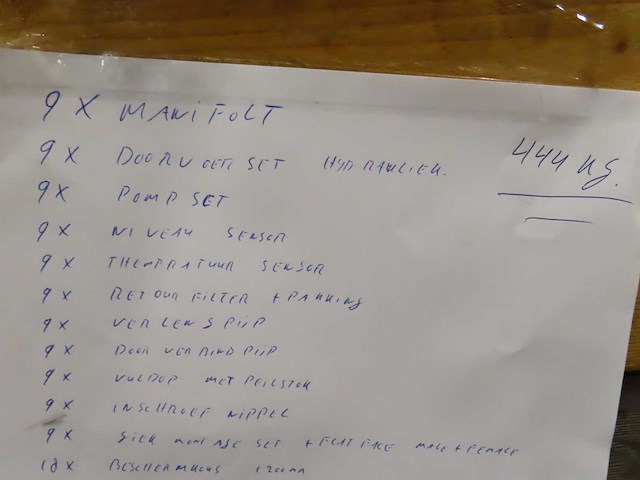 9 X MANIFOLT
9 X DOORVOER SET HYDRAULIEK.
444 KG.
9X POMP SET
9 X NIVEAU SENSOR
9 X THEMPRATUUR SENSOR
9 X RETOUR FILTER + PAKKING
9 X VERLENSPIJP
9 X DOORVERBINDPIJP
9 X VULDOP MET PEILSTOK
9 X INSCHROEF NIPPEL
9 X MONTAGE SET + FLAT FACE MALE + FEMALE
18 X BESCHERMHOES 1200MM